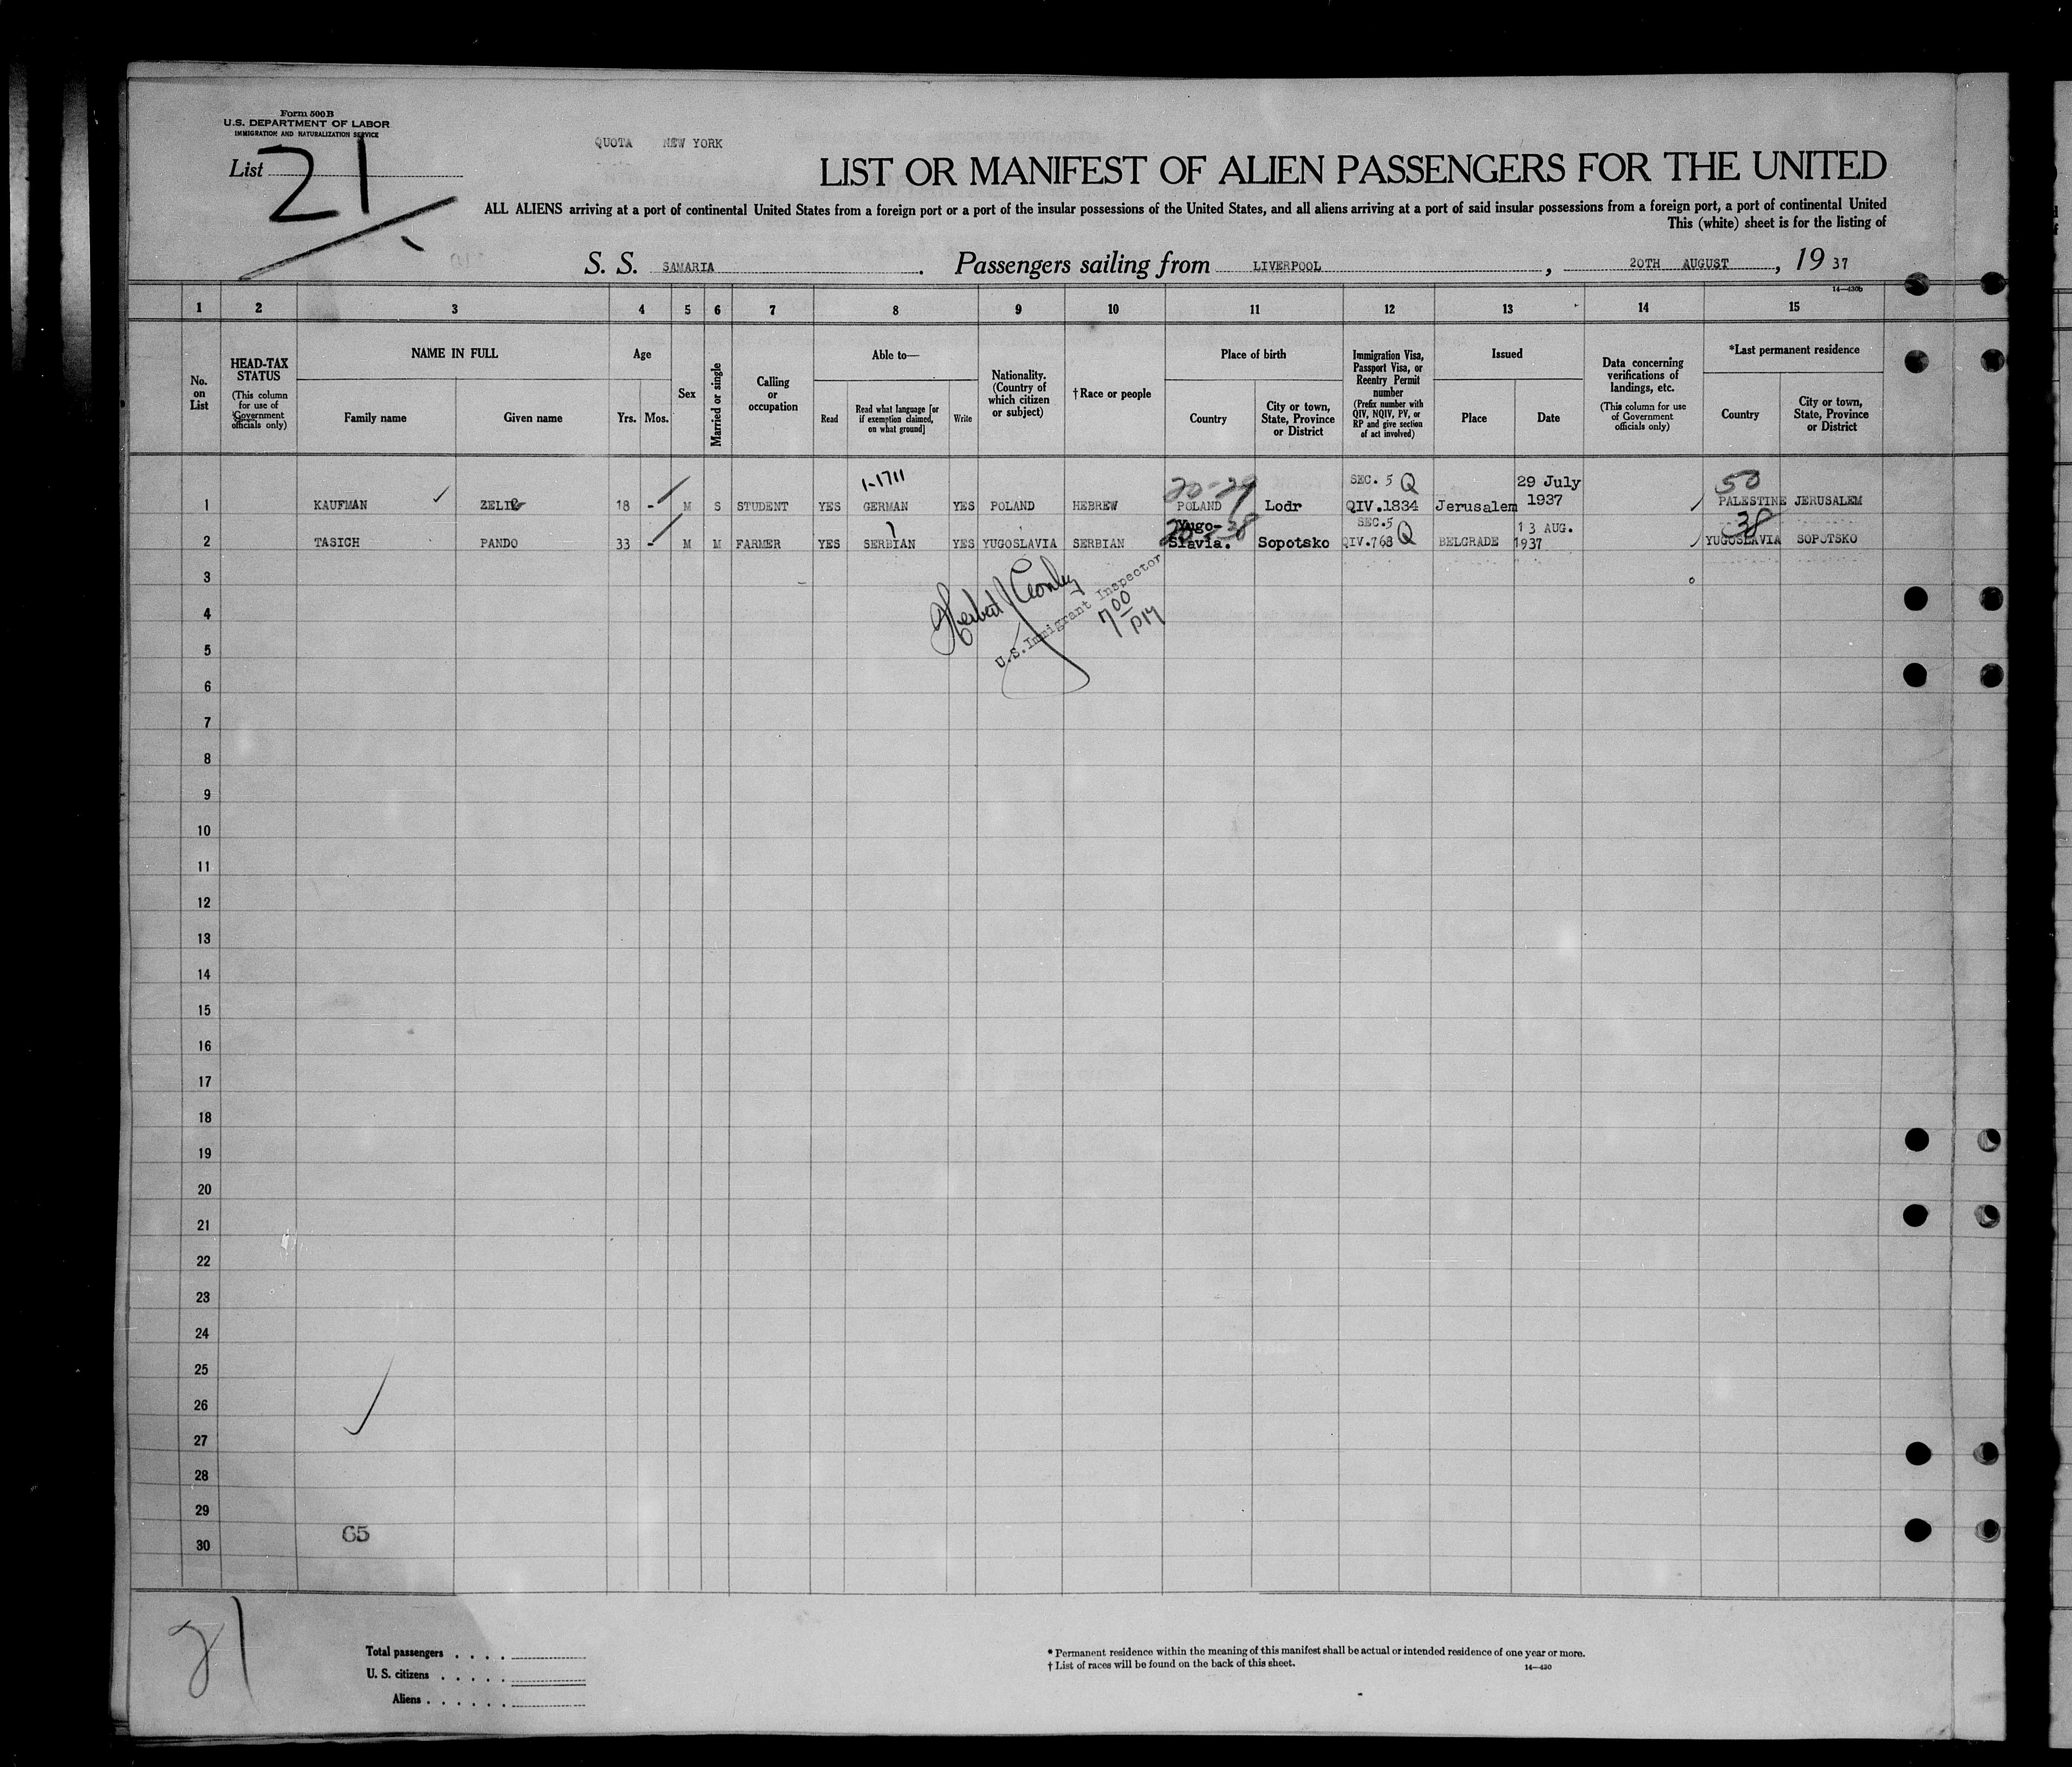 Form 500B
U.S. DEPARTMENT OF LABOR
IMMIGRATION AND NATURALIZATION SERVICE
List 21
QUOTA NEW YORK
LIST OR MANIFEST OF ALIEN PASSENGERS FOR THE UNITED
ALL ALIENS arriving at a port of continental United States from a foreign port or a port of the insular possessions of the United States, and all aliens arriving at a port of said insular possessions from a foreign port, a port of continental United
This (white) sheet is for the listing of
S. S. SAMARIA. Passengers sailing from LIVERPOOL, 20TH AUGUST, 1937
14—430b
1 2 3 4 5 6 7 8 9 10 11 12 13 14 15
No. on List
HEAD-TAX STATUS (This column for use of Government officials only)
NAME IN FULL
Family name
Given name
Age
Yrs. Mos.
Sex
Married or single
Calling or occupation
Able to—
Read
Read what language [or if exemption claimed, on what ground]
Write
Nationality. (Country of which citizen or subject)
†Race or people
Place of birth
Country
City or town, State, Province or District
Immigration Visa, Passport Visa, or Reentry Permit number (Prefix number with QIV, NQIV, PV, or RP and give section of act involved)
Issued
Place
Date
Data concerning verifications of landings, etc. (This column for use of Government officials only)
*Last permanent residence
Country
City or town, State, Province or District
1-1711 20-29 SEC. 5 Q 29 July 50
1 KAUFMAN ZELIG 18 - M S STUDENT YES GERMAN YES POLAND HEBREW POLAND Lodr QIV.1834 Jerusalem 1937 PALESTINE JERUSALEM
Yugo- 38 SEC.5 Q 13 AUG. 38
2 TASICH PANDO 33 - M M FARMER YES SERBIAN YES YUGOSLAVIA SERBIAN Slavia. Sopotsko QIV.768 BELGRADE 1937 YUGOSLAVIA SOPOTSKO
3
U.S. Immigrant Inspector
7 00 PM
4
5
6
7
8
9
10
11
12
13
14
15
16
17
18
19
20
21
22
23
24
25
26
27
28
29
65
30
21
Total passengers . . . .
U. S. citizens . . . . .
Aliens . . . . . .
* Permanent residence within the meaning of this manifest shall be actual or intended residence of one year or more.
† List of races will be found on the back of this sheet.
14—430